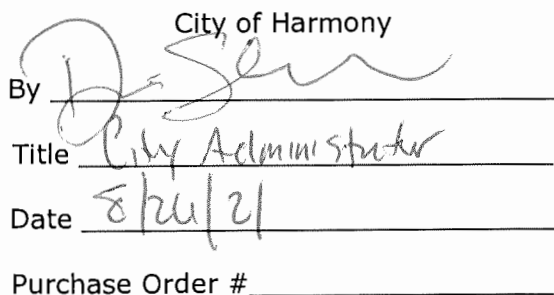 City of Harmony
By
Title City Administrator
Date 8/26/21
Purchase Order #